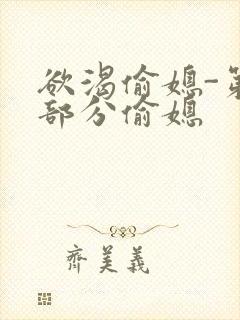 欲渴偷媳-第
部分偷媳
齊美義